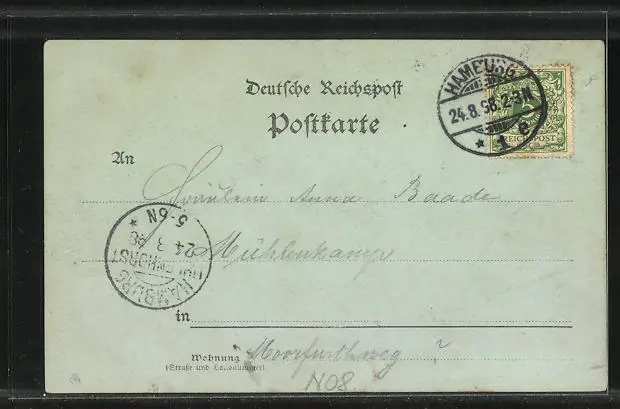 Deutsche Reichspost
Postkarte
HAMBURG
24.8.98.2-3N
* 1 e
REICHSPOST
An
Fräulein Anna Baade
Mühlenkamp
HAMBURG
UHLENHORST
24
98
5-6N
*
in
Wohnung
(Straße und Hausnummer)
Moorfurthweg
N08